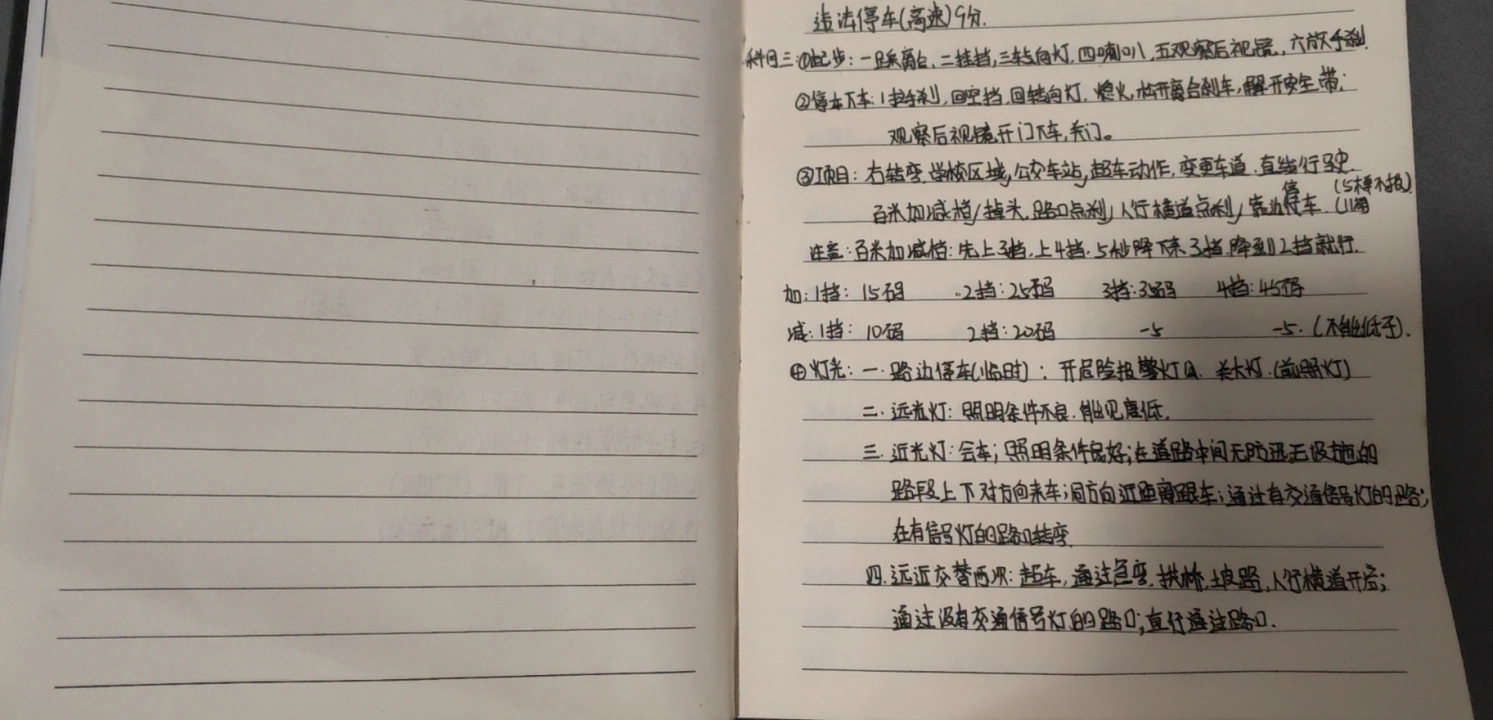 违法停车(高速)9分.
科目三:①起步:一踩离合、二挂挡,三转向灯,四喇叭,五观察后视镜,六放手刹.
②停车下车:1拉手刹,回空挡,回转向灯,熄火,松开离合刹车,解开安全带;
观察后视镜开门下车,关门。
③项目:右转弯,学校区域,公交车站,超车动作,变更车道.直线行驶
百米加减档/掉头,路口点刹,人行横道点刹,靠边停车.
注意:百米加减档:先上3挡,上4挡.5秒降下来3挡.降到2挡就行.
加:1挡:15码 2挡:25码 3挡:35码 4挡:45码
减:1挡:10码 2挡:20码 -5 -5.(不能低于).
④灯光:一.路边停车(临时):开危险报警灯,关大灯.(前照灯)
二.远光灯:照明条件不良.能见度低.
三.近光灯:会车;照明条件良好;在道路中间无防迅无设施的
路段上下对方向来车;同方向近距离跟车;通过有交通信号灯的路;
在有信号灯的路口转弯
四.远近交替两次:超车,通过急弯,拱桥,坡路,人行横道开启;
通过没有交通信号灯的路口;直行通过路口.